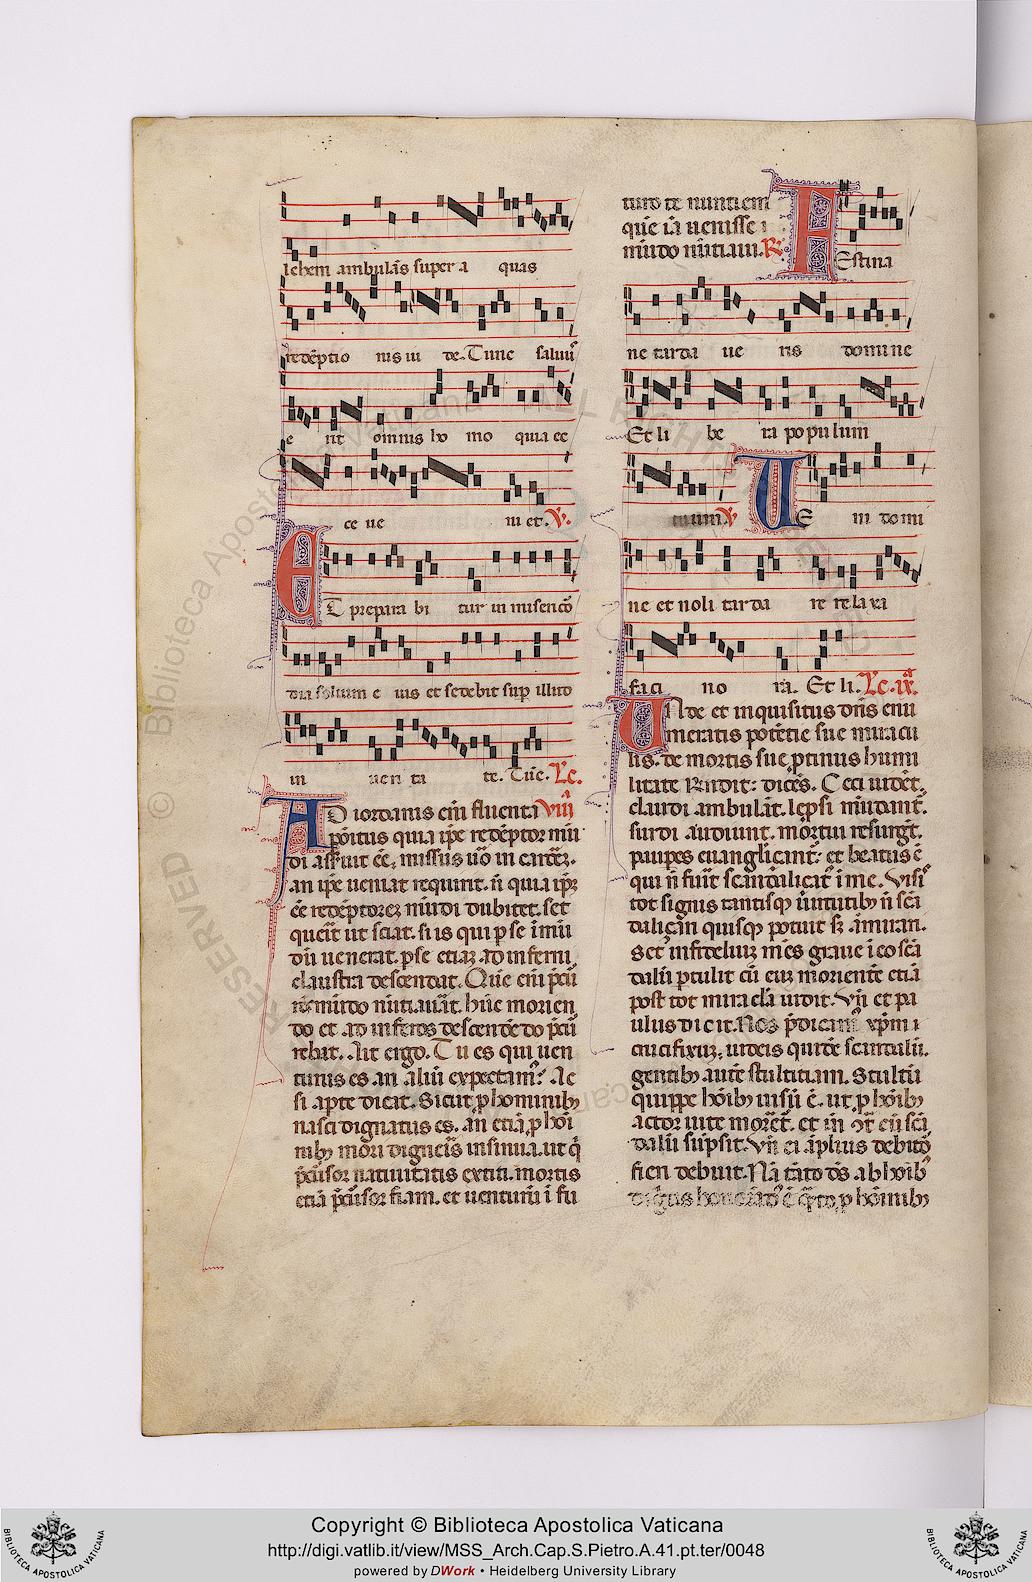 lehem ambulās super a quas
redēptio nis iu de. Tunc saluus
e rit omnis ho mo quia ec
ce ue ni et. V.
ET prepara bi tur in miserico
dia solium e ius et sedebit sup illud
in ueri ta te. Tūc. Lc.
AD iordanis eni fluenta viii
positus quia ipe redēptor mū
di asseruit eē, missus uo in
an ipe ueniat requirit. n quia ipz
eē redēptorez mūdi dubitet. set
querit ut sciat. si is qui p se i mū
dū uenerat. p se etiaz ad inferni
claustra descendat. Que eni pcū
rēs mūdo nūtiauāt. hūc morien
do et ad inferos descendēdo pcū
rebat. Ait ergo. Tu es qui uen
turus es. an aliū expectam?. Ac
si apte dicat. Sicut p hominibȝ
nasci dignatus es. an etiā p hoi
nibȝ mori digneris insinua. ut q
pcūsor natiuitatis extiti. mortis
etiā pcūsor fiam. et uenturū i fu
turo te nuntiem
que iā uenisse
mūdo nūtiaui. R.
FEstina
ne tarda ue ris domine
Et li be ra populum
tuum V UE ni domi
ne et noli tarda re relaxa
faci no ra. Et li. Lc. ix.
UNde et inquisitus dns enu
meratis potētie sue miracu
lis. de mortis sue ptinus humi
litate Rndit: dicēs. Ceci uidēt.
claudi ambulāt. lepsi mūdant.
surdi audiunt. mortui resurgūt.
paupes euanglicant: et beatus ē
qui n fuit scandalicat i me. Visis
tot signis tantisqȝ uirtutibȝ n scā
daliçari quisqȝ potuit sȝ amirari.
Set infideliuz mēs graue i eo scā
dalū ptulit cū euz moriente etiā
post tot miracla uidit. Vn et pa
ulus dicit. Nos pdicam xpm
crucifixuz, iudeis quidē scandalū.
gentibȝ autē stultitiam. Stultū
quippe hoibȝ uisū ē. ut p hoibȝ
actor uite moret. et in eū scā
dalū supsit. Vn ei aplius debitor
fieri debuit. Nā tāto ds ab hoibȝ
p hominibȝ
Copyright © Biblioteca Apostolica Vaticana
http://digi.vatlib.it/view/MSS_Arch.Cap.S.Pietro.A.41.pt.ter/0048
powered by DWork • Heidelberg University Library
BIBLIOTECA APOSTOLICA VATICANA
BIBLIOTECA APOSTOLICA VATICANA